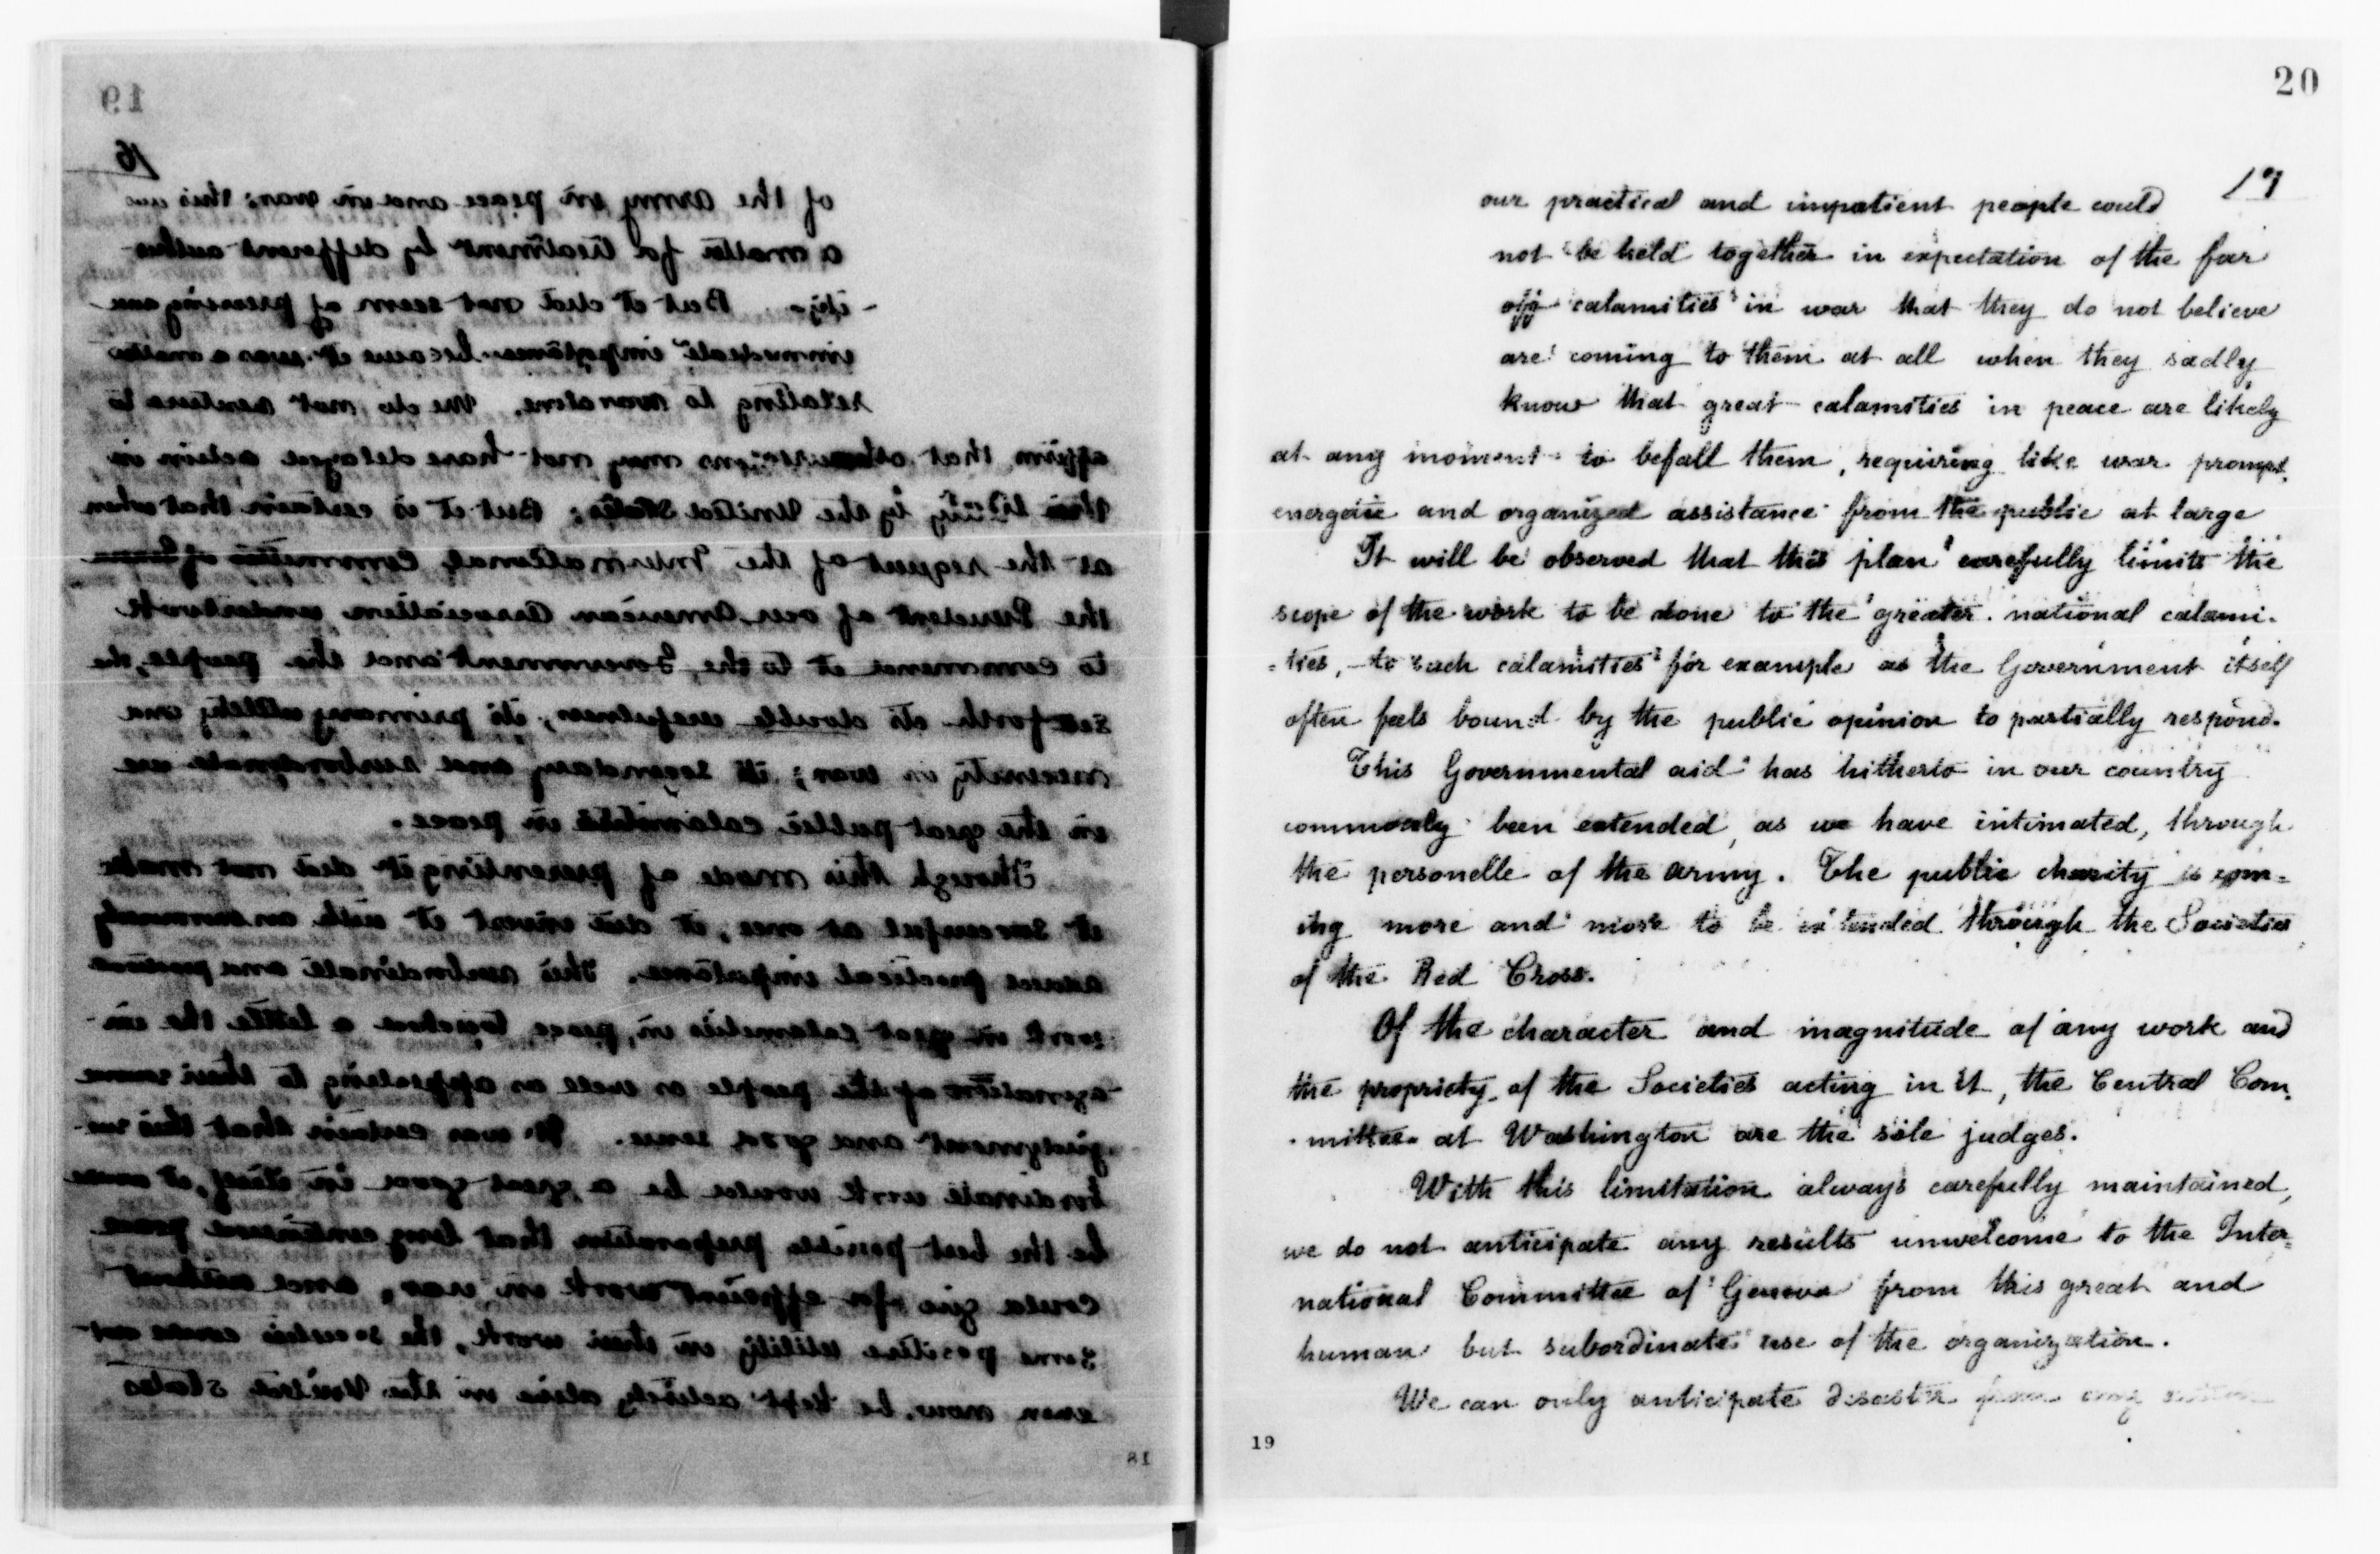 19
16
of the army in peace and in war: this
a matter for treatment by different autho-
-ity. But it did not seem of pressing
immediate importance because it was a matter
relating to war alone. We do not venture to
affirm that other reasons may not have delayed action in
this treaty by the United States; But it is certain that when
at the request of the International Committee of Geneva
the President of our American Association undertook
to commend it to the Government and the people, she
set forth its double usefulness; its primary utility and
necessity in war; its secondary and subordinate use
in the great public calamities in peace.
Though this mode of presenting it did not make
it successful at once, it did invest it with an
practical importance. This subordinate and
work in great calamities in peace, touched a little the im-
-agination of the people as well as appealing to their
judgment and good sense. It was certain that this su-
bordinate work would be a great good in itself,
be the best possible preparation that long continued peace
could give for efficient work in war, and without
some positive utility in their work, the societies could not
even now, be kept actively alive in the United States
18
20
17
our practical and impatient people could
not be held together in expectation of the far
off calamities in war that they do not believe
are coming to them at all when they sadly
know that great calamities in peace are likely
at any moment to befall them, requiring like war prompt,
energetic and organized assistance from the public at large
It will be observed that this plan carefully limits the
scope of the work to be done to the greater national calami-
-ties, – to such calamities for example as the Government itself
often feels bound by the public opinion to partially respond.
This Governmental aid has hitherto in our country
commonly been extended, as we have intimated, through
the personelle of the army. The public charity is com-
ing more and more to be extended through the Societies
of the Red Cross.
Of the character and magnitude of any work and
the propriety of the Societies acting in it, the Central Com-
-mittee at Washington are the sole judges.
With this limitation always carefully maintained,
we do not anticipate any results unwelcome to the Inter-
national Committee of Geneva from this great and
human but subordinate use of the organization.
We can only anticipate disaster from any
19